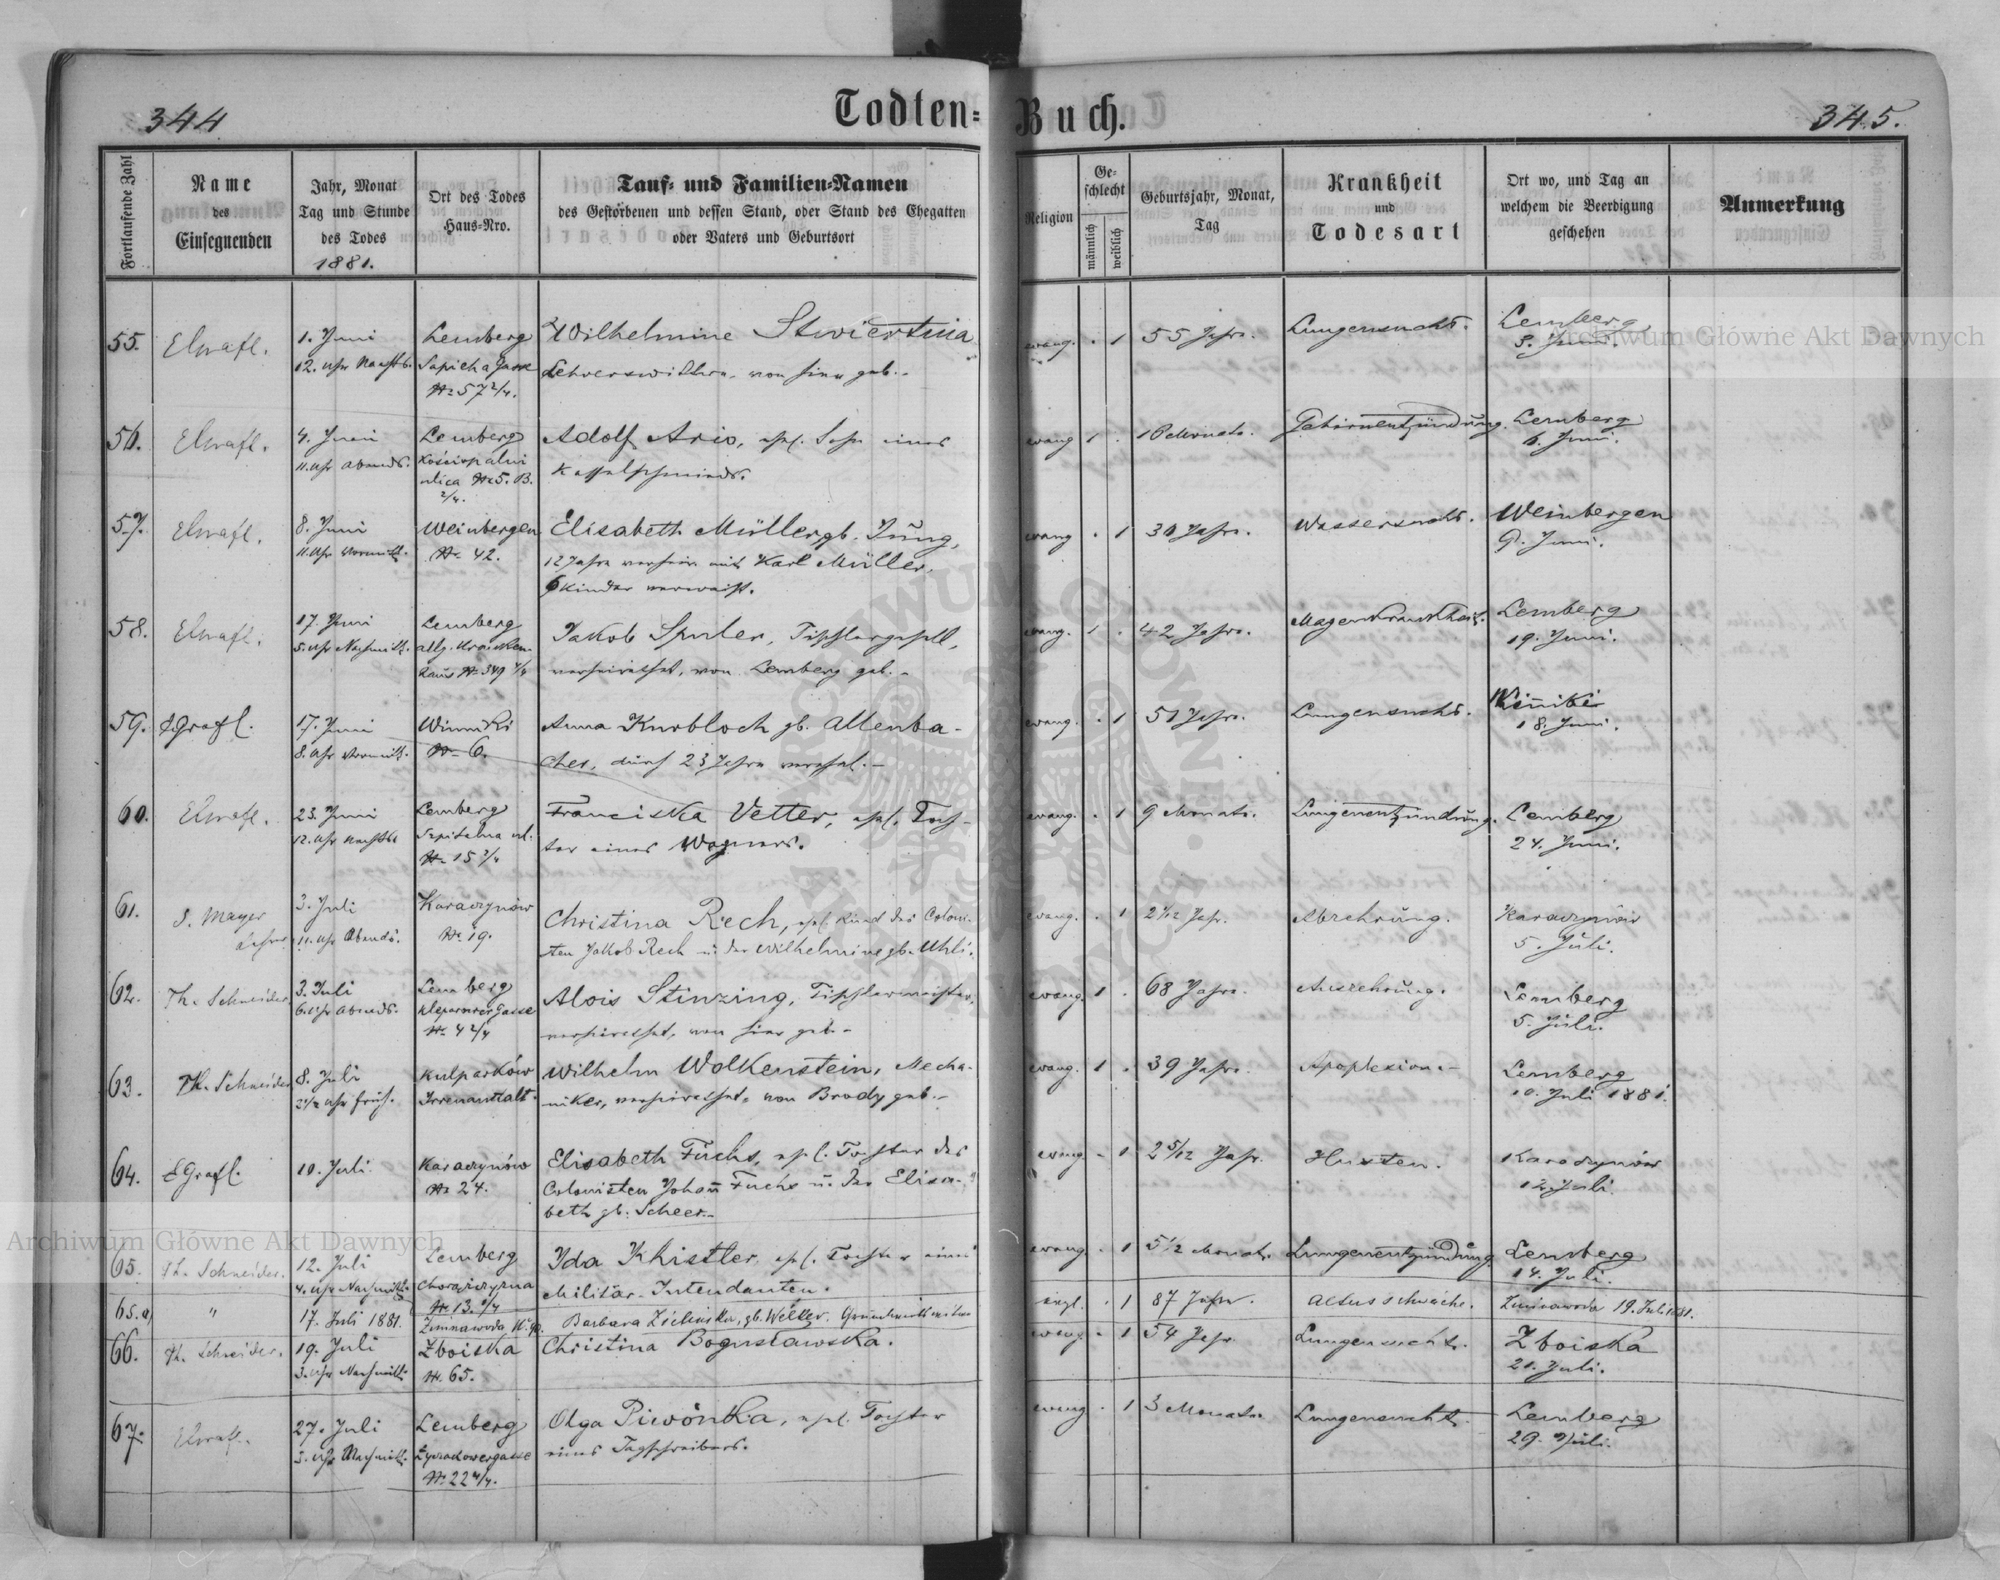 344
Todten-Buch.
345.
Fortlaufende Zahl
Name
des
Einsegnenden
Jahr, Monat
Tag und Stunde
des Todes
1881.
Ort des Todes
Haus-Nro.
Tauf- und Familien-Namen
des Gestorbenen und dessen Stand, oder Stand des Ehegatten
oder Vaters und Geburtsort
Religion
Ge-
schlecht
männlich
weiblich
Geburtsjahr, Monat,
Tag
Krankheit
und
Todesart
Ort wo, und Tag an
welchem die Beerdigung
geschehen
Anmerkung
55.
1. Juni
12. Uhr Nachts.
Lemberg
Sapieha Gasse
Nr 57 2/4.
Wilhelmine Stwiertnia
von hier geb.-
evang. . 1
55 Jahre.
Lungensucht.
Lemberg
3. Juni.
56.
4. Juni
11. Uhr Abends.
Lemberg
ulica Nr 5. B.
2/4.
Adolf Ario, ehel. Sohn eines
Kesselschmieds.
evang 1 .
Gehirnentzündung.
Lemberg
6. Juni.
57.
8. Juni
11. Uhr Vormitt.
Weinbergen
Nr 42.
Elisabeth Müller gb. Jung,
12 Jahre verheir. mit Karl Müller.
6 Kinder verwaist.
evang . 1
Wassersucht.
Weinbergen
9. Juni.
58.
17. Juni
5. Uhr Nachmitt.
Lemberg
allg. Kranken
haus Nr 349 4/4
Jakob Spuler, Tischlergesell,
verheirathet, von Lemberg geb.-
evang. 1 .
42 Jahre.
Magenkrankheit.
Lemberg
19. Juni.
59.
17. Juni
8. Uhr Vormitt.
Winniki
Nr 6.
Anna Knobloch gb. Altenba-
cher, durch 23 Jahre verehel.-
evang. . 1
51 Jahre.
Lungensucht.
18. Juni.
60.
23. Juni
12. Uhr Nachts
Lemberg
Nr 15 2/4
Franciska Vetter, ehel. Toch-
ter eines Wagners.
evang. . 1
9 Monate.
Lungenentzündung.
Lemberg
24. Juni.
61.
J. Mayer
Lehrer
3. Juli
11. Uhr Abends.
Karaczynów
Nr 19.
Christina Rech, ehel. Kind des Coloni-
sten Jakob Rech u. der Wilhelmine gb. Uhli.
evang. . 1
2 1/12 Jahr.
Abzehrung.
Karaczynów
5. Juli.
62.
Th. Schneider
3. Juli
6. Uhr Abends.
Lemberg
Kleparower Gasse
Nr 4 2/4
Alois Stinzing, Tischlermeister,
verheirathet, von hier geb.-
evang. 1 .
68 Jahre.
Auszehrung.
Lemberg
5. Juli.
63.
Th. Schneider
8. Juli
2 1/2 Uhr früh.
Kulparków
Irrenanstalt.
Wilhelm Wolkenstein, Mecha-
niker, verheirathet, von Brody geb.-
evang. 1 .
39 Jahre.
Lemberg
10. Juli 1881.
64.
10. Juli.
Karaczynów
Nr 24.
Elisabeth Fuchs, ehel. Tochter des
Colonisten Johan Fuchs u. der Elisa-
beth gb. Scheer.-
evang - 1
2 5/12 Jahr.
Husten.
Karaczynów
12. Juli.
65.
Th. Schneider.
12. Juli
4. Uhr Nachmitt.
Lemberg
Nr 13. 2/4
Ida Khistler, ehel. Tochter eines
Militär-Intendanten.
evang. . 1
5 1/2 Monat.
Lungenentzündung.
Lemberg
14. Juli.
65.a)
"
17. Juli 1881.
Zimnawoda
Barbara
. 1
87 Jahre.
Altersschwäche.
Zimnawoda 19. Juli 1881.
66.
Th. Schneider.
19. Juli
3. Uhr Nachmitt.
Zboiska
Nr. 65.
Christina Bogusławska.
evang - 1
54 Jahr.
Lungensucht.
Zboiska
21. Juli.
67.
27. Juli
3. Uhr Nachmitt.
Lemberg
Nr. 22 4/4.
Olga Piwónka, ehel. Tochter
eines Tagschreibers.
evang . 1
3 Monate
Lungensucht.
Lemberg
29. Juli.
Archiwum Główne Akt Dawnych
Archiwum Główne Akt Dawnych